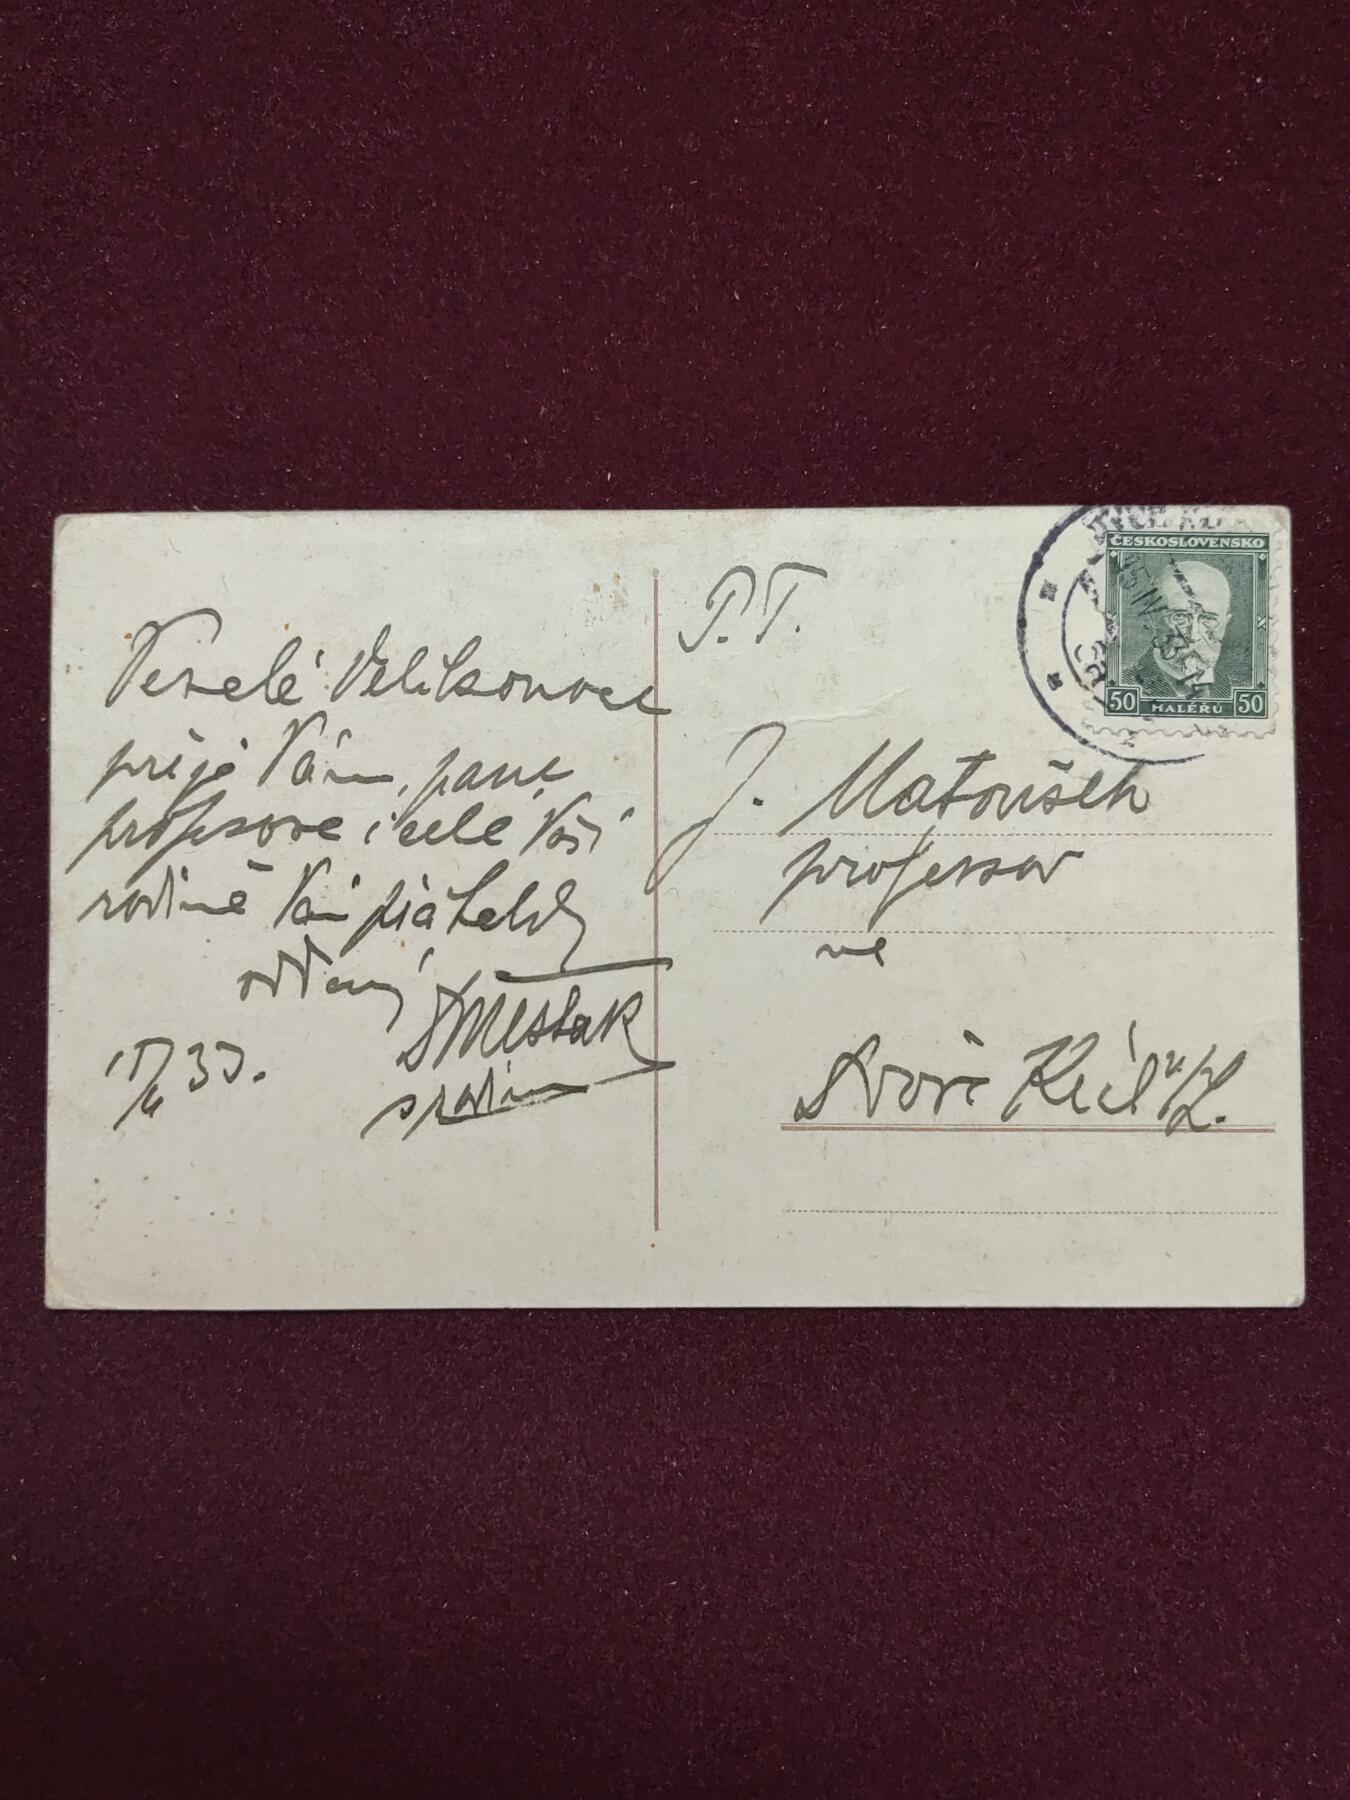 Veselé Velikonoce
přeje Vám, pane
profesore i celé Vaší
rodině Vám přátelsky
oddaný
Směšťák
s rodinou
15/4 33.
P.T.
J. Matoušek
professor
ve
Dvoře Král n/L.
ČESKOSLOVENSKO
50 HALÉŘŮ 50
15.IV.33